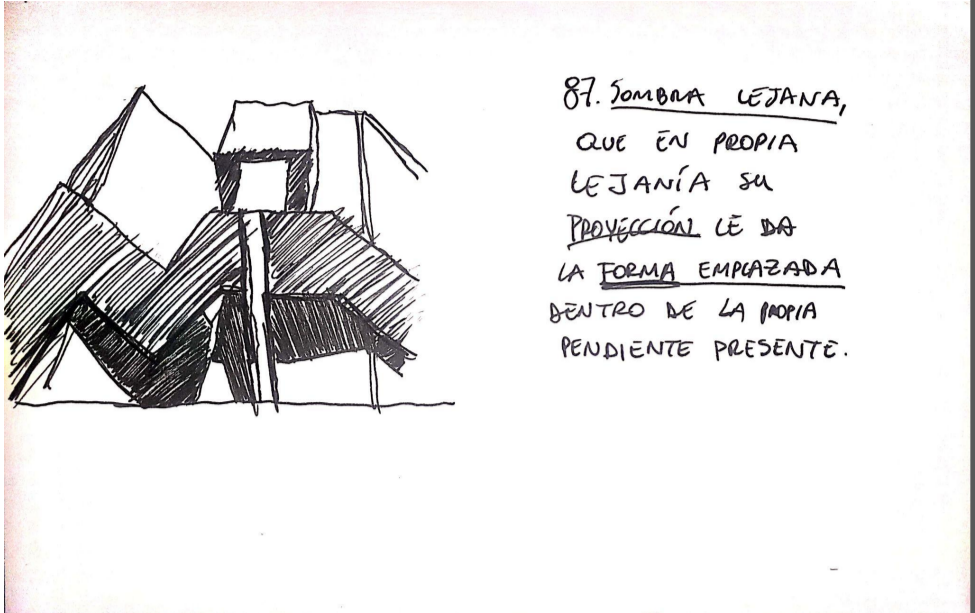 87. SOMBRA LEJANA,
QUE EN PROPIA
LEJANÍA SU
PROYECCIÓN LE DA
LA FORMA EMPLAZADA
DENTRO DE LA PROPIA
PENDIENTE PRESENTE.